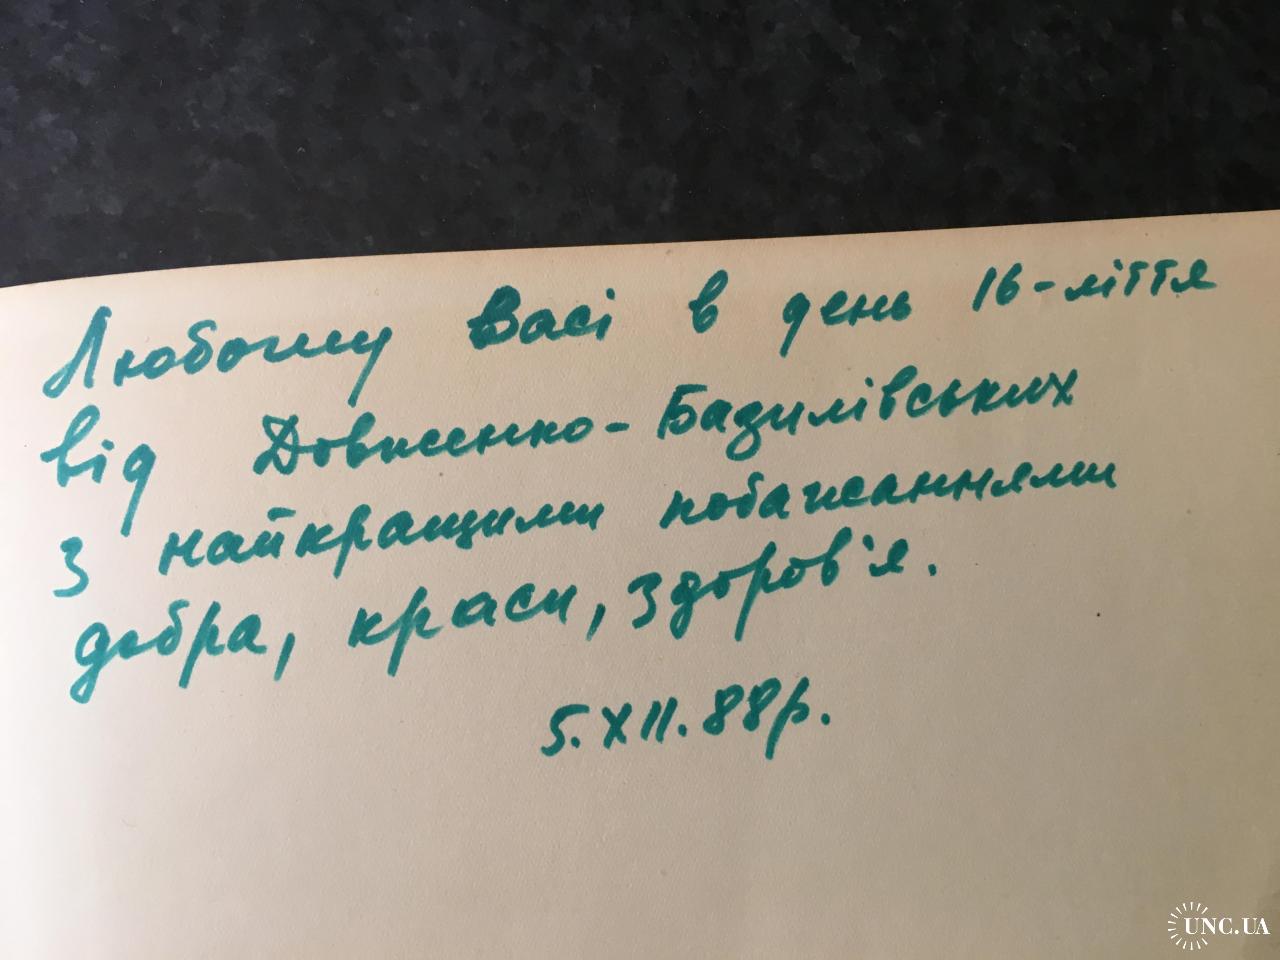 Любому Васі в день 16-ліття
від Довженко-Базилівських
з найкращими побажаннями
добра, краси, здоров'я.
5.XII.88р.
UNC.UA